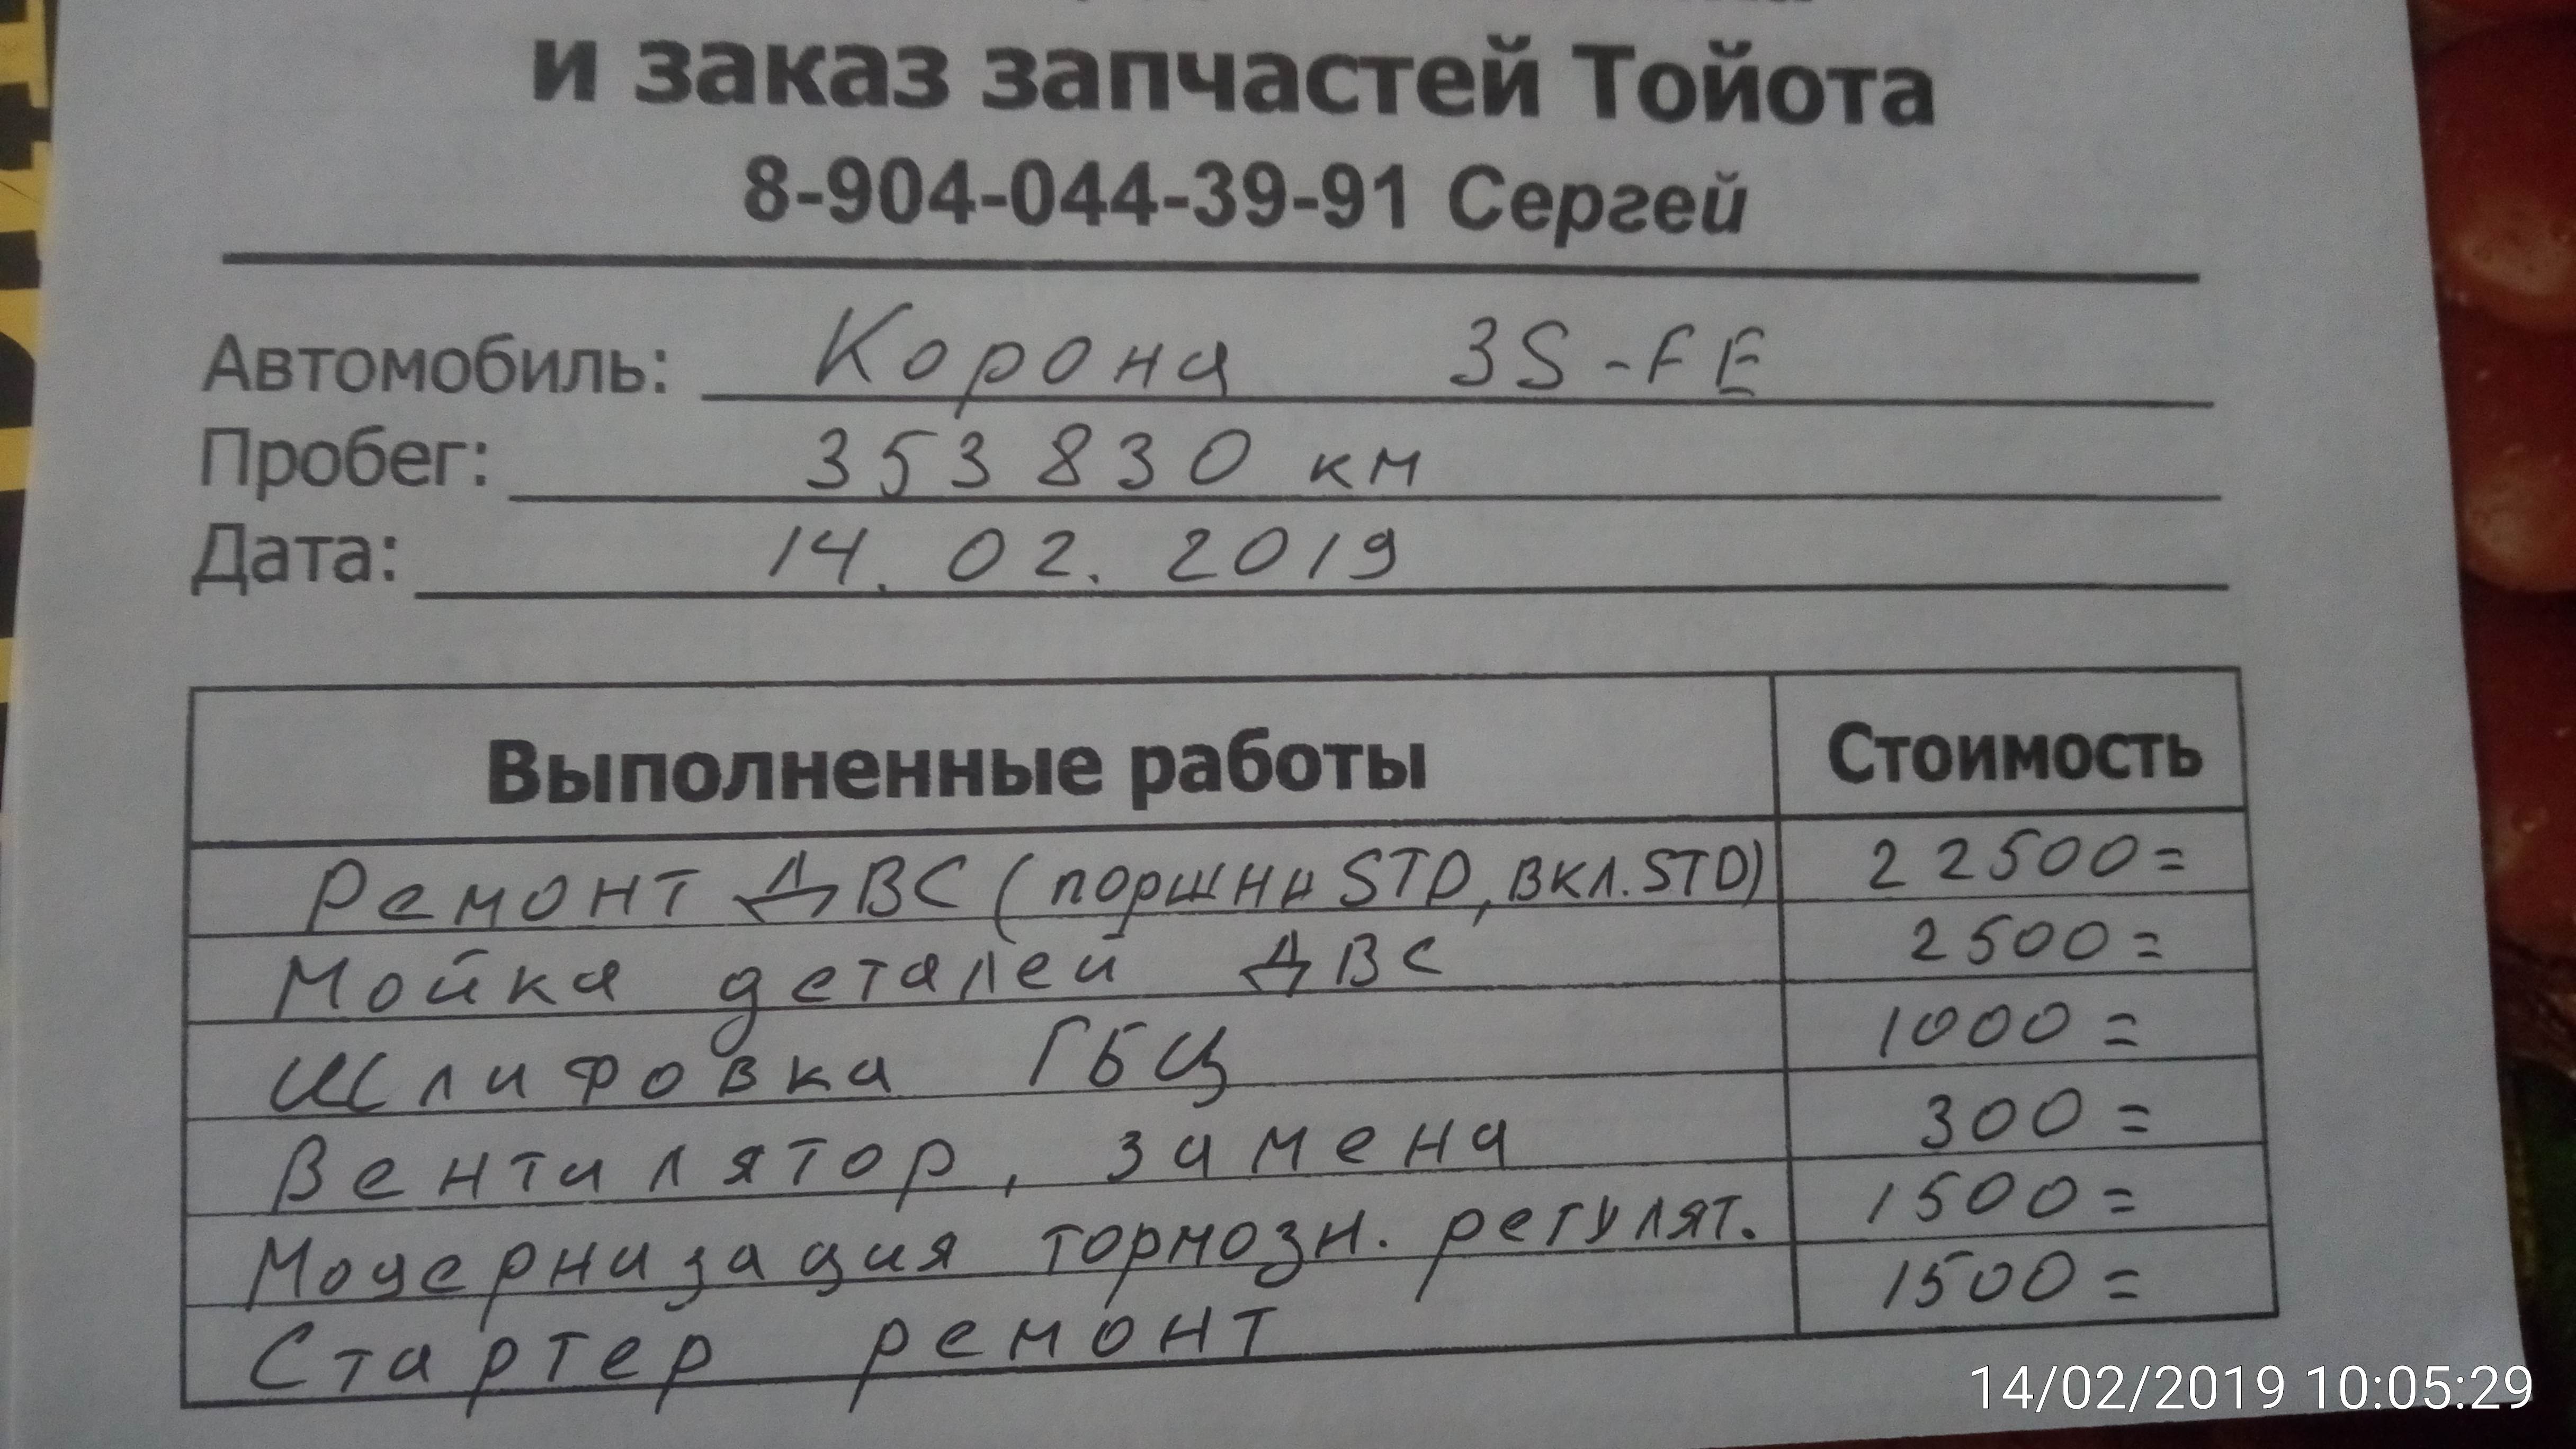 и заказ запчастей Тойота
8-904-044-39-91 Сергей
Автомобиль: Корона 3S-FE
Пробег: 353 830 км
Дата: 14. 02. 2019
Выполненные работы Стоимость
Ремонт ДВС (поршни STD, вкл. STD) 22500=
Мойка деталей ДВС 2500=
Шлифовка ГБЦ 1000=
Вентилятор, замена 300=
Модернизация тормозн. регулят. 1500=
Стартер ремонт 1500=
14/02/2019 10:05:29